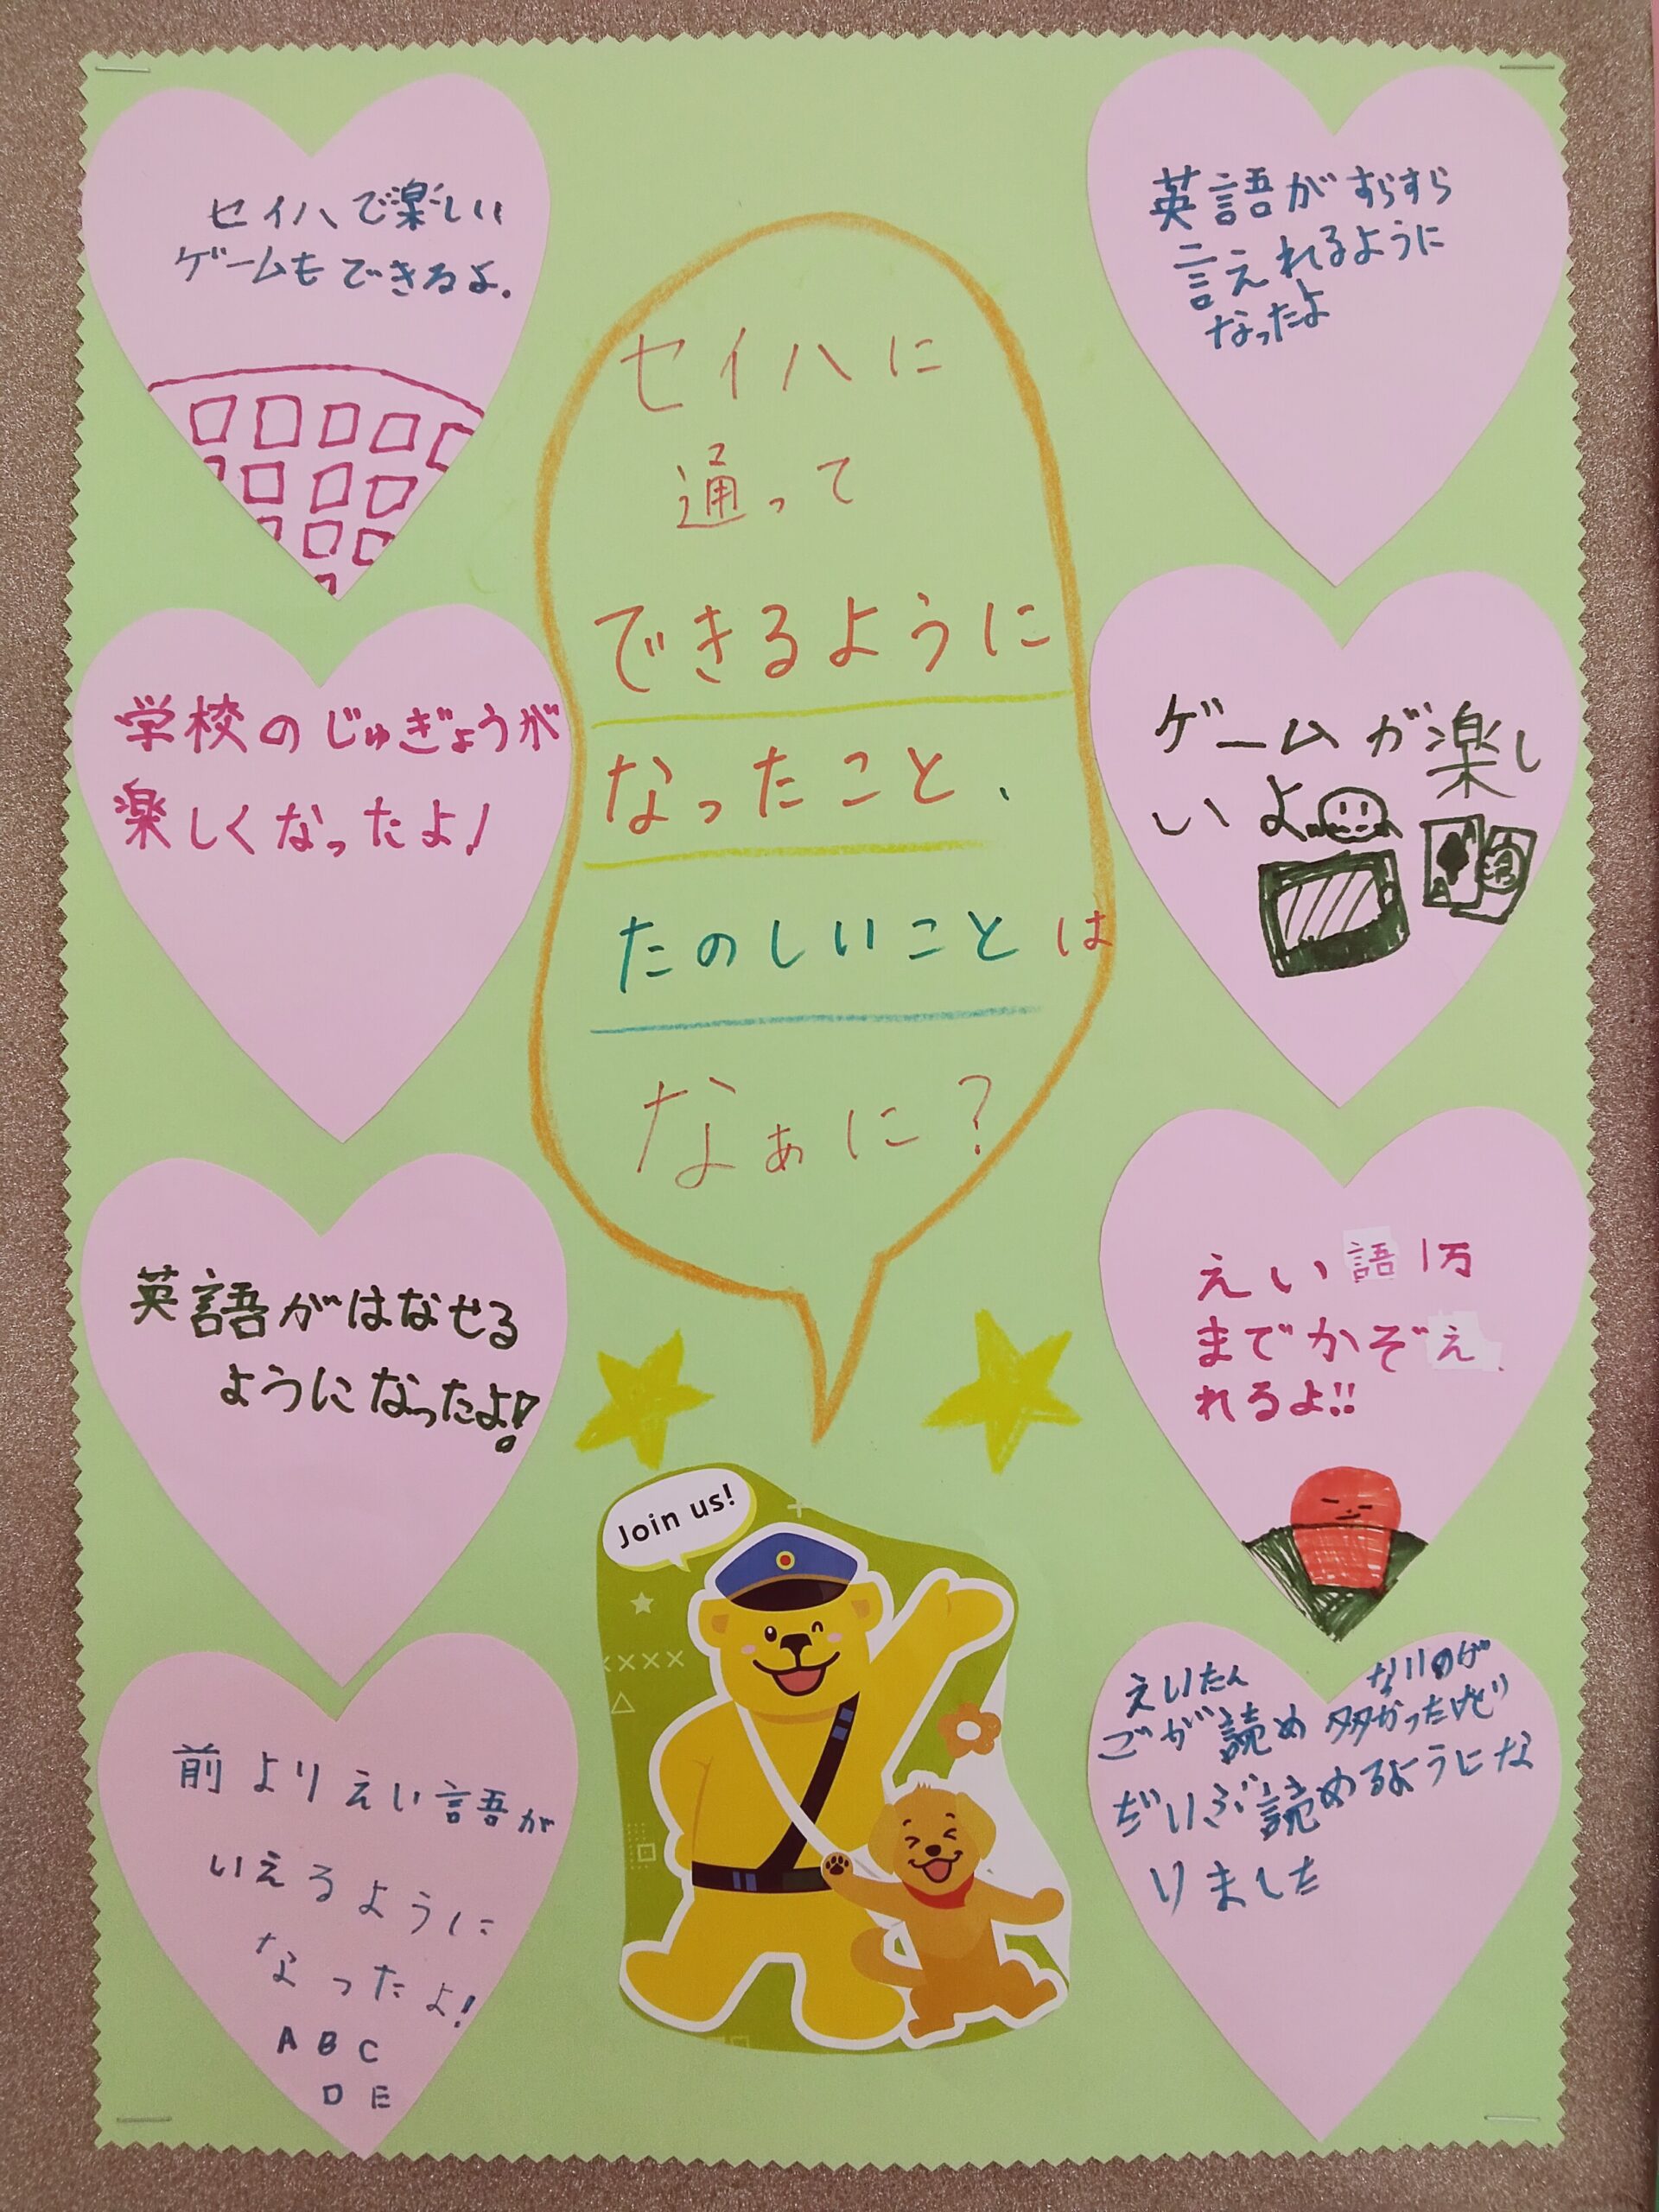 セイハに
通って
できるように
なったこと、
たのしいことは
なぁに?
セイハで楽しい
ゲームもできるよ.
学校のじゅぎょうが
楽しくなったよ!
英語がはなせる
ようになったよ!
前よりえい語が
いえるように
なったよ!
A B C
D E
英語がすらすら
言えれるように
なったよ
ゲームが楽し
いよ
えい語1万
までかぞえ
れるよ!!
えいたん
ごが読め
ないのが
多かったけど
だいぶ読めるようにな
りました
Join us!